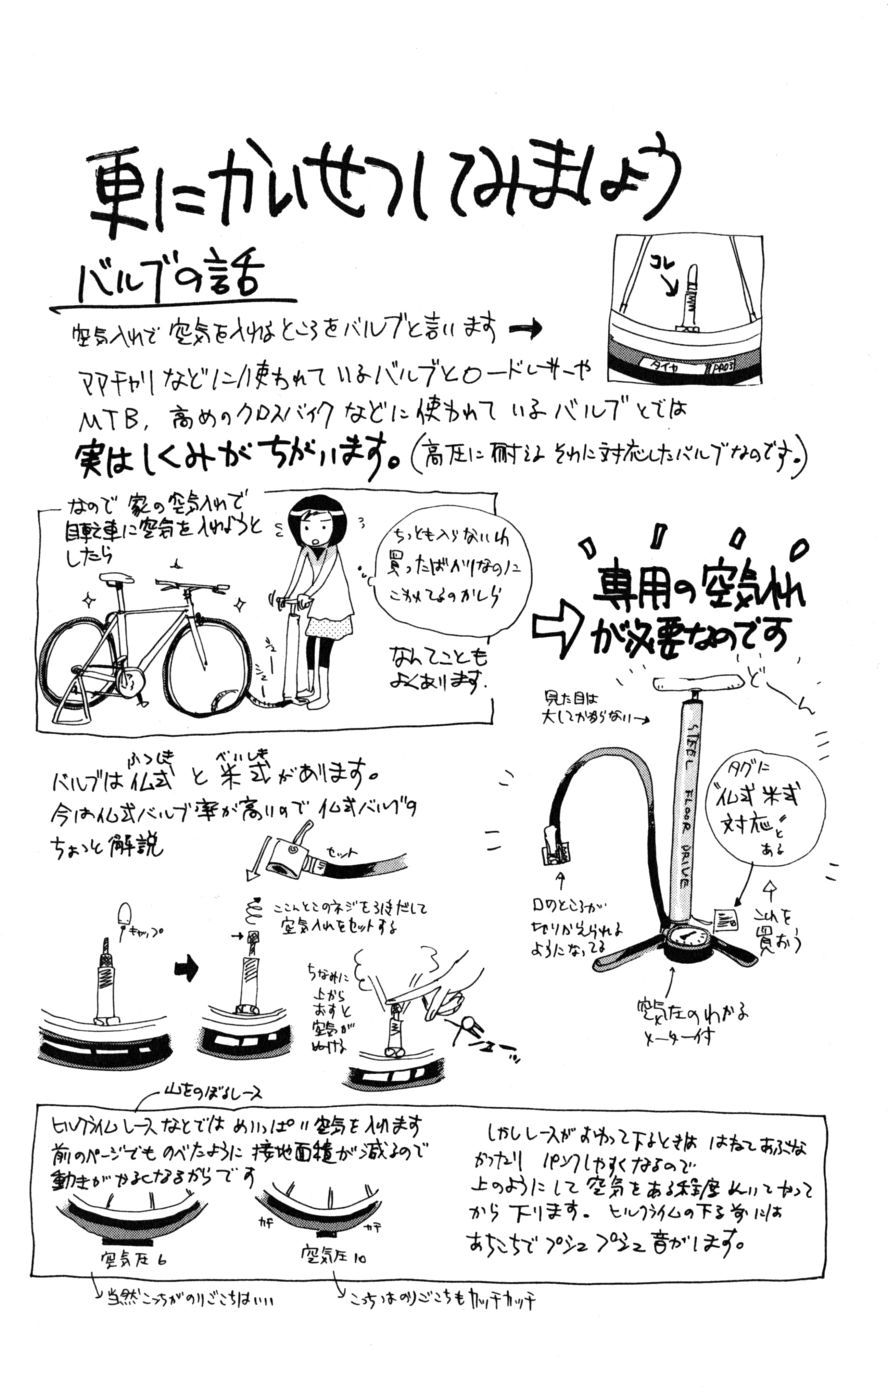 更にかいせつしてみましょう
バルブの話
空気入れで空気を入れるところをバルブと言います
コレ
タイヤ
ママチャリなどに使われているバルブとロードレーサーや
MTB、高めのクロスバイクなどに使われているバルブとでは
実はしくみがちがいます。(高圧に耐えるそれに対応したバルブなのです。)
なので家の空気入れで
自転車に空気を入れようと
したら
ちっとも入らないわ
買ったばかりなのに
こわれてるのかしら
シュー
シュー
なんてことも
よくあります。
専用の空気入れ
が必要なのです
どーん
見た目は
大してかわらない
STEEL FLOOR DRIVE
タグに
"仏式米式
対応"と
ある
これを
買おう
口のところが
切りかえられる
ようになってる
空気圧のわかる
メーター付
ふつしき
べいしき
バルブは仏式と米式があります。
今は仏式バルブ率が高いので仏式バルブの
ちょっと解説
セット
キャップ
ここんとこのネジをぬきだして
空気入れをセットする
ちなみに
上から
おすと
空気が
ぬける
山をのぼるレース
ヒルクライムレースなどではめいっぱい空気を入れます
前のページでものべたように接地面積が減るので
動きがかるくなるからです
空気圧6
カチ
カチ
空気圧10
当然こっちがのりごこちはいい
こっちはのりごこちもカッチカッチ
しかしレースがおわって下るときははねてあぶな
かったりパンクしやすくなるので
上のようにして空気をある程度ぬいてやって
から下ります。ヒルクライムの下る前には
あちこちでプシュプシュ音がします。